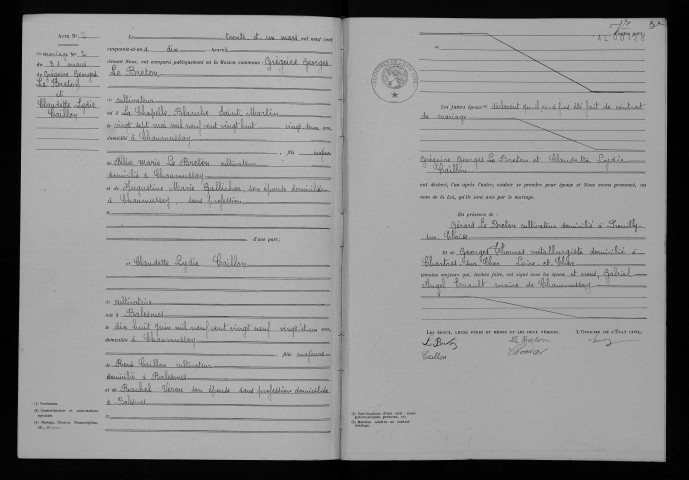 ACTE N° 2
mariage N° 2
du 31 mars
Grégoire Georges
Le Breton
et
Claudette Lydie
Caillon
Le trente et un mars mil neuf cent
cinquante-et-un dix heures
devant Nous, ont comparu publiquement en la Maison commune Grégoire Georges
Le Breton
cultivateur
né à La Chapelle Blanche Saint Martin
le vingt sept mai mil neuf cent vingt huit vingt deux ans
domicilié à Chaumussay
, fils majeur
de Félix Marie Le Breton cultivateur
domicilié à Chaumussay
et de Augustine Marie son épouse domiciliée
à Chaumussay sans profession
d'une part;
et Claudette Lydie Caillon
cultivatrice
née à Balesmes
le dix huit juin mil neuf cent vingt neuf vingt et un ans
domiciliée à Chaumussay
, fille majeure
de René Caillon cultivateur
domicilié à Balesmes
et de Rachel Véron son épouse sans profession domiciliée
à Balesmes
(1) Profession.
(3) Mariage, Divorce, Transcription,
etc., et
d'autre part;
Les futurs époux déclarent qu'il n'a pas été fait de contrat
de mariage
Grégoire Georges Le Breton et Claudette Lydie
Caillon
ont déclaré, l'un après l'autre, vouloir se prendre pour époux et Nous avons prononcé, au
nom de la Loi, qu'ils sont unis par le mariage.
En présence de
Gérard Le Breton cultivateur domicilié à Preuilly
sur Claise
et de Georges Thomas métallurgiste domicilié à
Chartres sur Cher Loir et Cher
témoins majeurs qui, lecture faite, ont signé avec les époux et nous, Gabriel
Angel maire de Chaumussay
LES ÉPOUX, LEURS PÈRES ET MÈRES ET LES DEUX TÉMOINS, L'OFFICIER DE L'ÉTAT CIVIL,
Le Breton
Caillon
Thomas